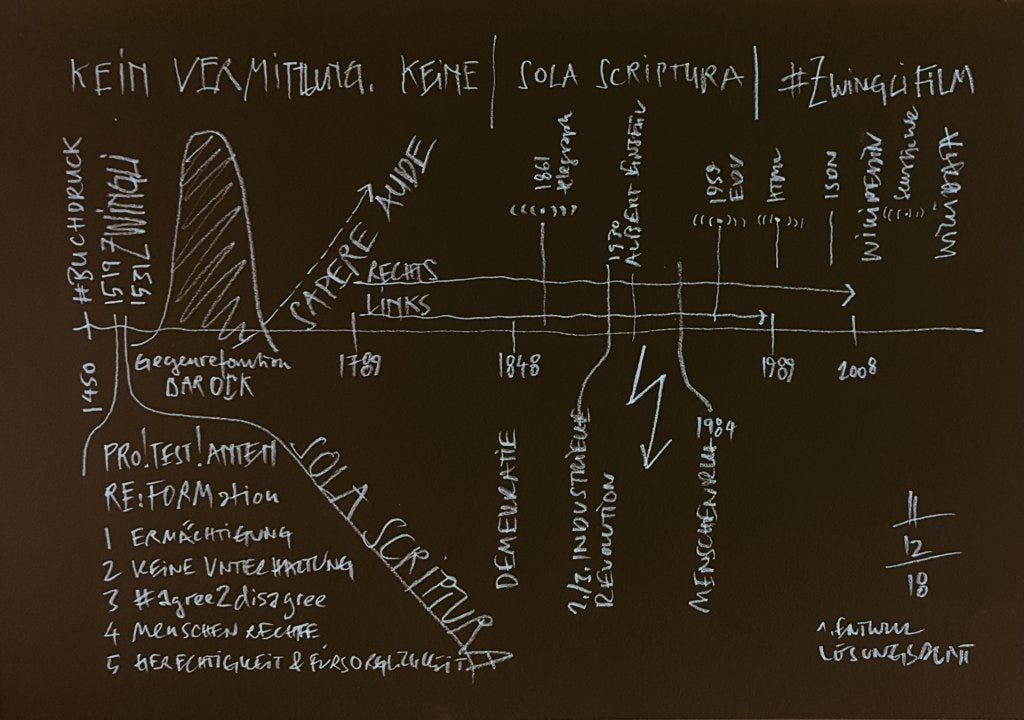 KEIN VERMITTLUNG. KEINE | SOLA SCRIPTURA | #ZWINGLIFILM
#BUCHDRUCK
1519 ZWINGLI
1531
SAPERE AUDE
1861
telegraph
1920
ALBERT EINSTEIN
1958
EDV
HTML
ISDN
WIKIPEDIA
WIKIDATA
RECHTS
LINKS
1450
Gegenreformation
BAROCK
1789
1848
1989
2008
1984
PRO!TEST!ANTEN
RE:FORMation
1 ERMÄCHTIGUNG
2 KEINE UNTERHALTUNG
3 #agree2disagree
4 MENSCHENRECHTE
5 GERECHTIGKEIT & FÜRSORGLICHKEIT
SOLA SCRIPTURA
DEMOKRATIE
2./3. INDUSTRIELLE
REVOLUTION
11
12
18
1. ENTWURF
LÖSUNGSBLATT